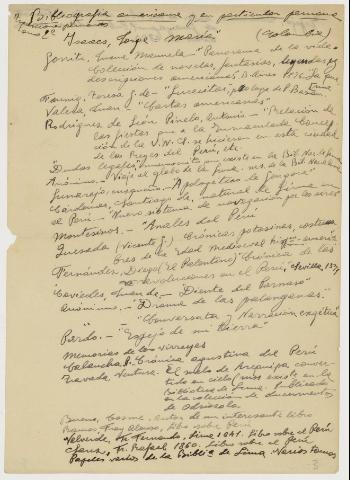 Bibliografía americana y en particular peruana
Tomo 2º
Isaacs, Jorge "María" (Colombia)
Gorriti, Juana Manuela - "Panorama de la vida"
Colección de novelas, fantasías, leyendas y
descripciones americanas, B. Aires 1876.
Juana G. de - "Lucecitas", prólogo de P. Bazán
Valera, Juan - "Cartas americanas"
Rodríguez de León Pinelo, Antonio - "Relación de
las fiestas que a la Inmaculada Concep-
ción de la V. N. S. se hicieron en esta ciudad
de los Reyes del Perú, etc.
Anónimo - Viaje al globo de la luna, m.s. de la Bib. Nac. de Lima
"Apologética de Góngora"
Cárdenas, Santiago de, natural de Lima en
el Perú - "Nuevo sistema de navegación por los aires"
Montesinos. - "Anales del Perú
Quesada (Vicente G.) Crónicas potosinas, costum-
bres de la Edad Medioeval hispano-americana
Fernández, Diego (el Palentino) "Crónica de las
revoluciones en el Perú", Sevilla, 157
Caviedes, Juan de - Diente del Parnaso"
Anónimo. - "Drama de los palanganas."
"Conversata y Narración exegética"
Pardo. - "Espejo de mi tierra"
Memorias de los virreyes
Calancha, P. Crónica agustina del Perú
Travada, Ventura. El suelo de Arequipa conver-
tido en cielo (mss existe en la
Biblioteca de Lima. Publicado
en la colección de documentos
de Odriozola
Bueno, Cosme, autor de un interesante libro
Ramos, Fray Alonso, libro sobre Perú
Valverde, Fr. Fernando, Lima 1641. Libro sobre el Perú
Fr. Rafael 1860. Libro sobre el Perú
Papeles varios de la Biblioª de Lima. Varios tomos
3